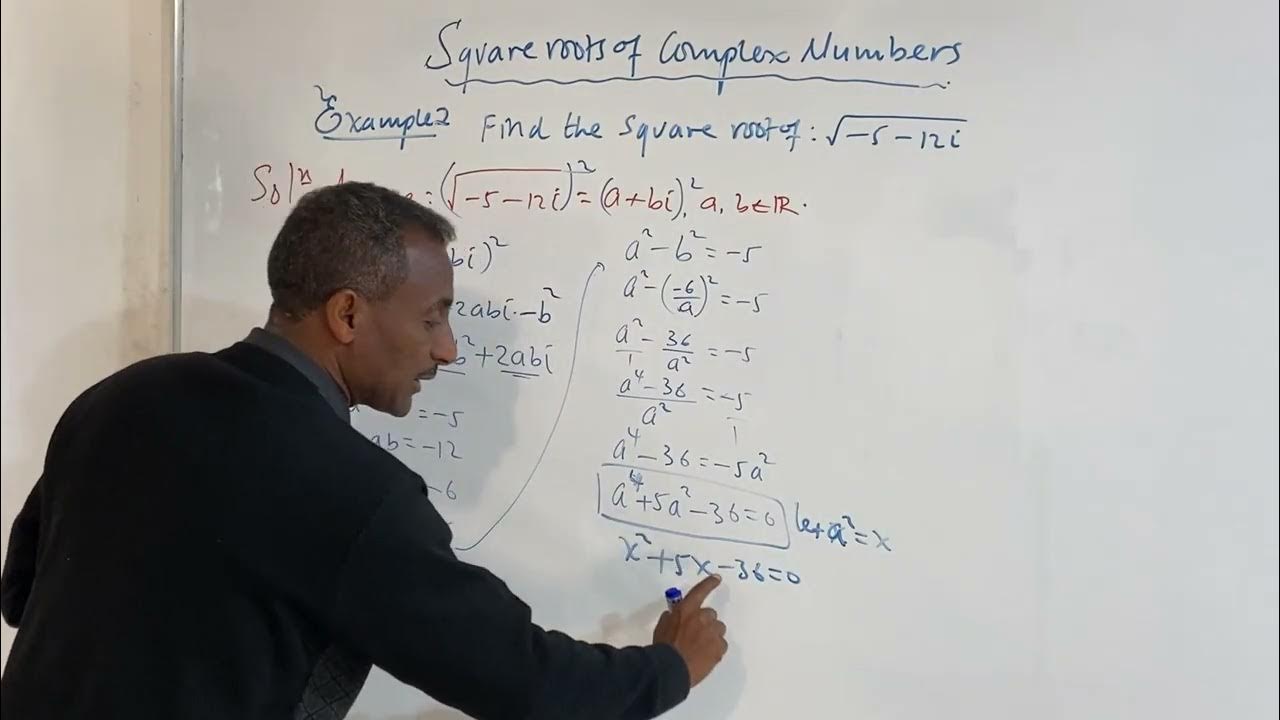 Square roots of Complex Numbers
Example 2 Find the square root of: √-5-12i
Sol (√-5-12i)² = (a+bi)², a, b ∈ ℝ.
bi)²
2abi - b²
b² + 2abi
= -5
ab = -12
-6
a² - b² = -5
a² - (-6/a)² = -5
a²/1 - 36/a² = -5
(a⁴ - 36)/a² = -5/1
a⁴ - 36 = -5a²
a⁴ + 5a² - 36 = 0 let a² = x
x² + 5x - 36 = 0